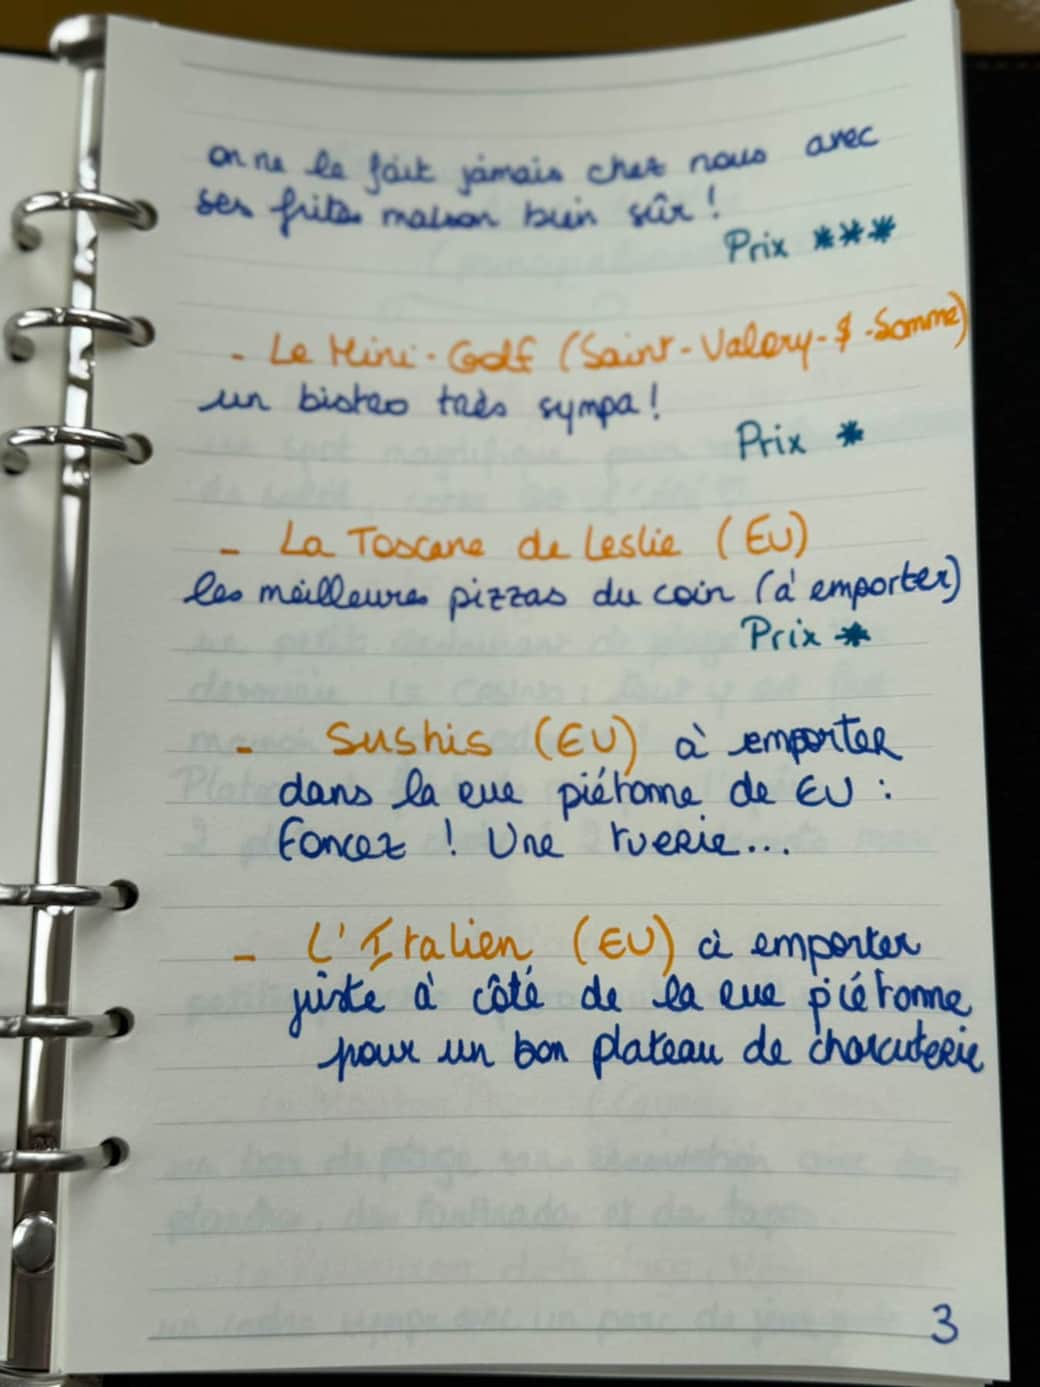 on ne le fait jamais chez nous avec
ses frites maison bien sûr !
Prix ***
- Le Mini-Golf (Saint-Valery-S-Somme)
un bistro très sympa !
Prix *
- La Toscane de Leslie (EU)
les meilleures pizzas du coin (à emporter)
Prix *
- Sushis (EU) à emporter
dans la rue piétonne de EU :
Foncez ! Une tuerie...
- L'Italien (EU) à emporter
juste à côté de la rue piétonne
pour un bon plateau de charcuterie
3